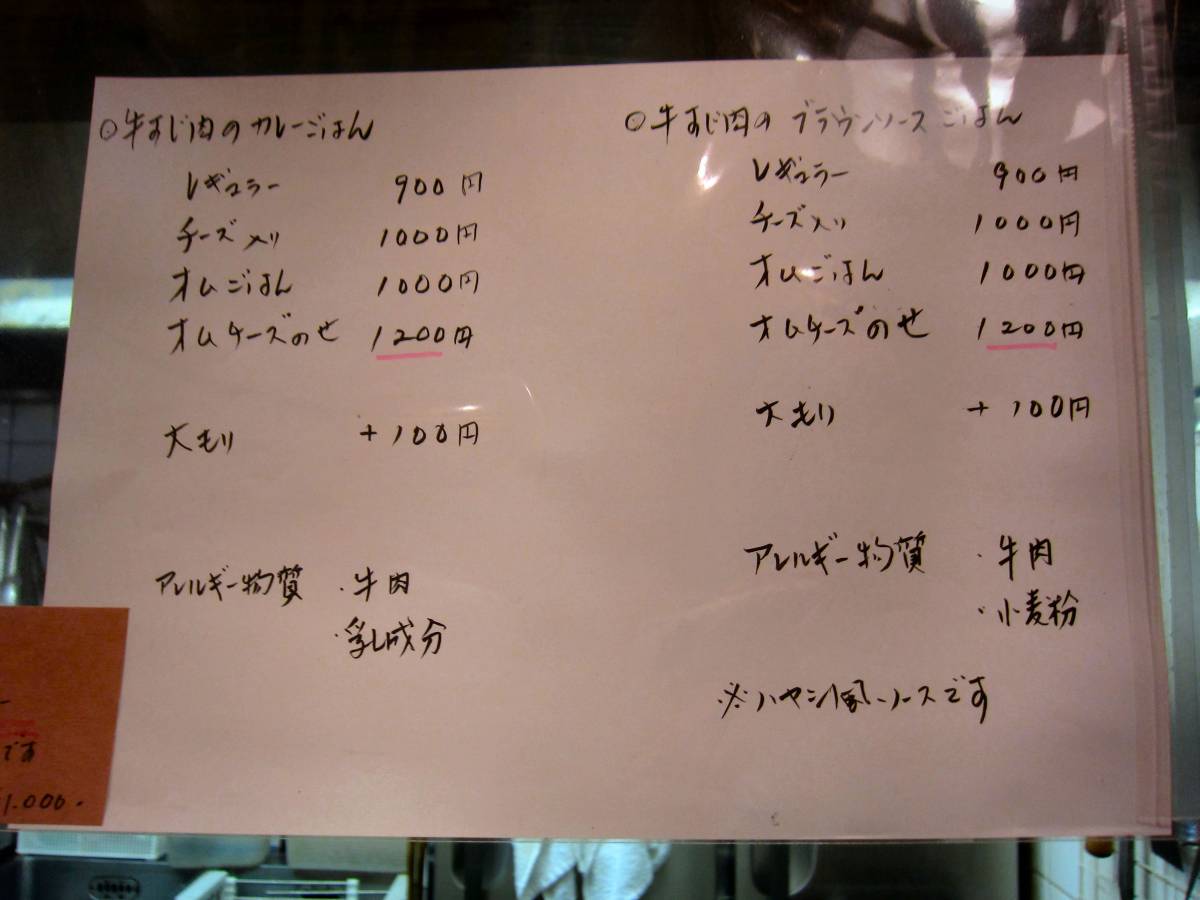 ○牛すじ肉のカレーごはん
レギュラー 900円
チーズ入り 1000円
オムごはん 1000円
オムチーズのせ 1200円
大もり +100円
アレルギー物質 ・牛肉
・乳成分
○牛すじ肉のブラウンソースごはん
レギュラー 900円
チーズ入り 1000円
オムごはん 1000円
オムチーズのせ 1200円
大もり +100円
アレルギー物質 ・牛肉
・小麦粉
※ハヤシ風ソースです
です
1.000.